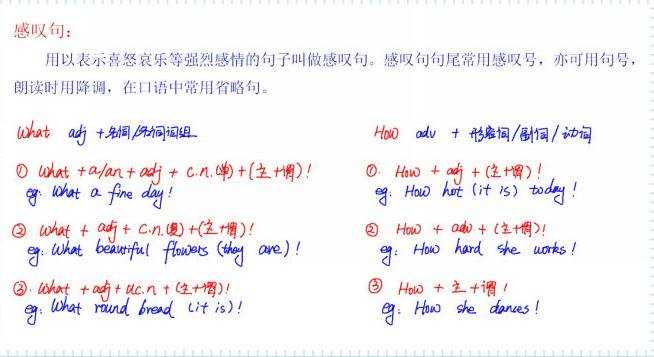 感叹句：
用以表示喜怒哀乐等强烈感情的句子叫做感叹句。感叹句句尾常用感叹号，亦可用句号，
朗读时用降调，在口语中常用省略句。
What adj + 名词/名词词组
① What + a/an + adj + c.n.(单) + (主+谓)!
eg: What a fine day!
② What + adj + c.n.(复) + (主+谓)!
eg: What beautiful flowers (they are)!
③. What + adj + uc.n + (主+谓)!
eg: What round bread (it is)!
How adv + 形容词/副词/动词
①. How + adj + (主+谓)!
eg: How hot (it is) today!
② How + adv + (主+谓)!
eg: How hard she works!
③ How + 主+谓!
eg: How she dances!